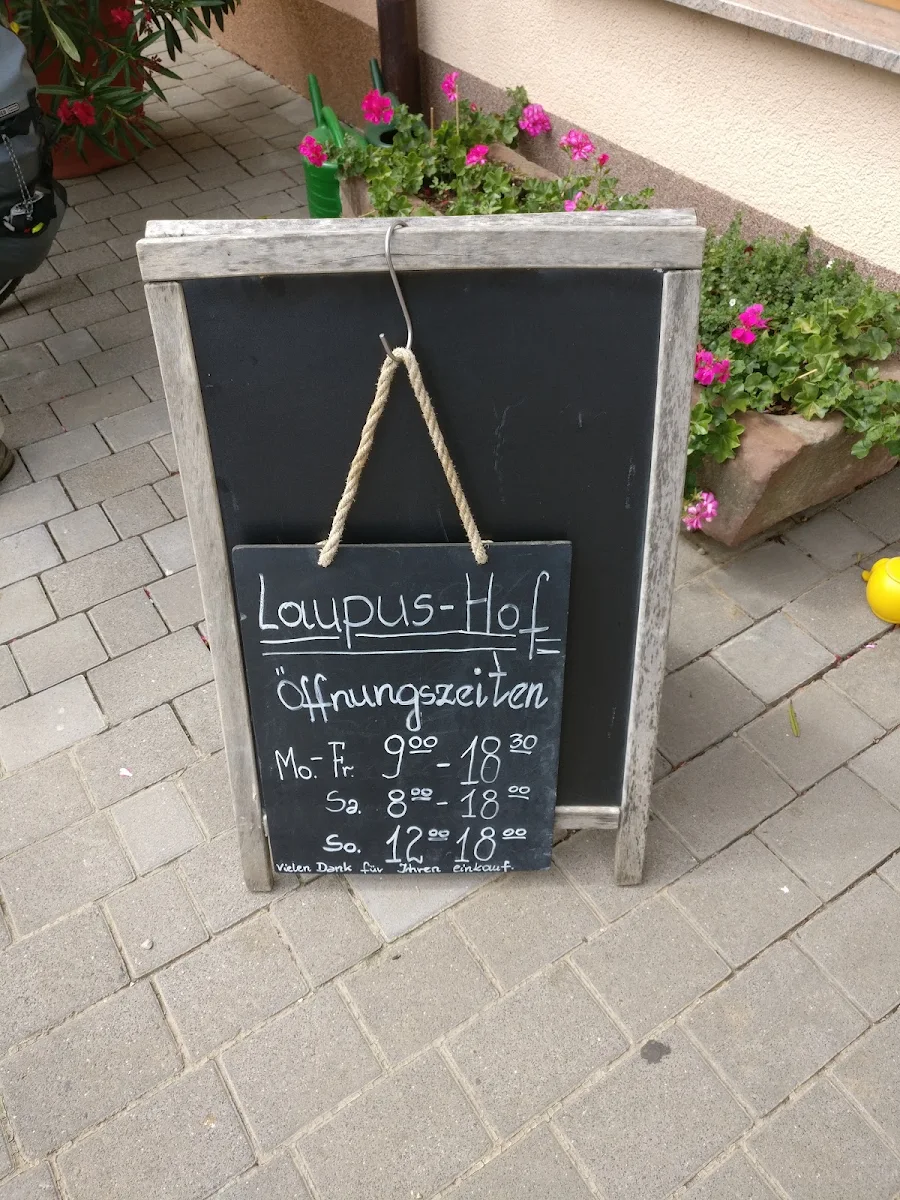 Laupus-Hof
Öffnungszeiten
Mo.-Fr. 9⁰⁰ - 18³⁰
Sa. 8⁰⁰ - 18⁰⁰
So. 12⁰⁰ 18⁰⁰
vielen Dank für Ihren einkauf.